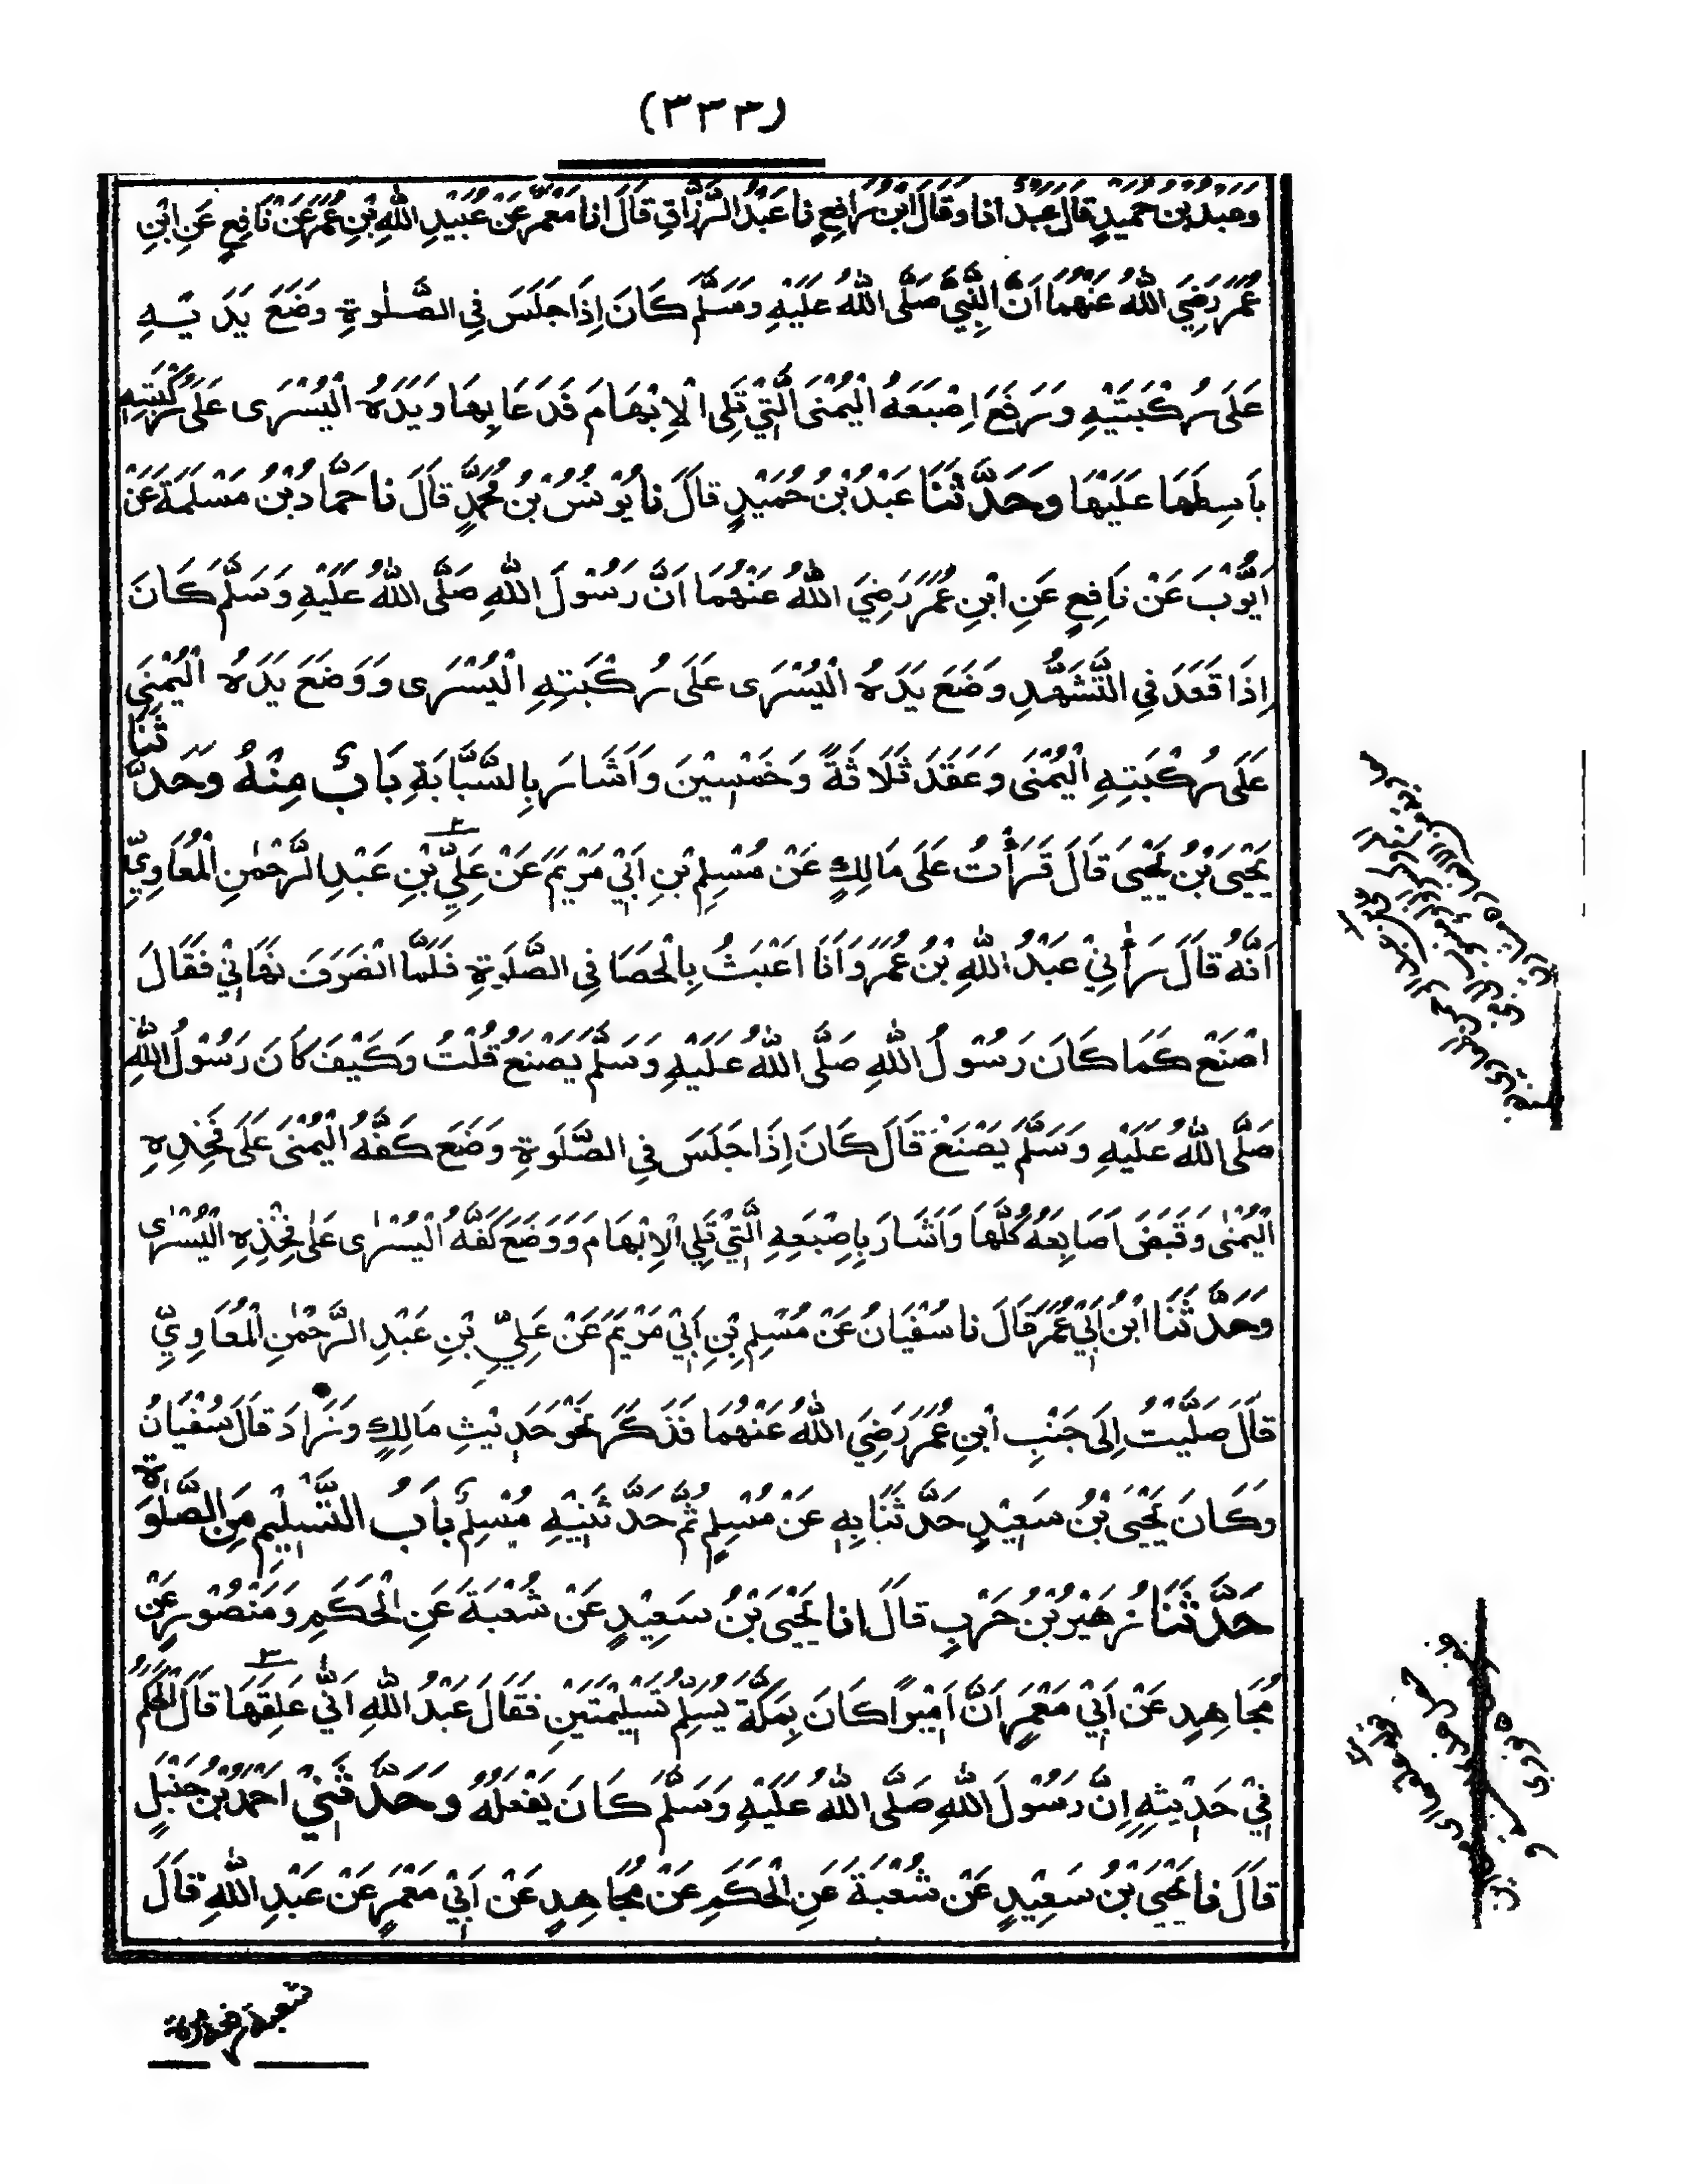 (٣٣٣)
وعبد بن حميد قال عبد انا وقال ابن رافع نا عبد الرزاق قال انا معمر عن عبيد الله بن عمر عن نافع عن ابن
عمر رضي الله عنهما ان النبي صلى الله عليه وسلم كان اذا جلس في الصلوة وضع يديه
على ركبتيه ورفع اصبعه اليمنى التي تلى الابهام فدعا بها ويده اليسرى على ركبته
باسطها عليها وحدثنا عبد بن حميد قال نا يونس بن محمد قال نا حماد بن سلمة عن
ايوب عن نافع عن ابن عمر رضي الله عنهما ان رسول الله صلى الله عليه وسلم كان
اذا قعد في التشهد وضع يده اليسرى على ركبته اليسرى ووضع يده اليمنى
على ركبته اليمنى وعقد ثلاثة وخمسين واشار بالسبابة باب منه وحدثنا
يحيى بن يحيى قال قرأت على مالك عن مسلم بن ابي مريم عن علي بن عبد الرحمن المعاوي
انه قال رأني عبد الله بن عمر وانا اعبث بالحصا في الصلوة فلما انصرف نهاني فقال
اصنع كما كان رسول الله صلى الله عليه وسلم يصنع قلت وكيف كان رسول الله
صلى الله عليه وسلم يصنع قال كان اذا جلس في الصلوة وضع كفه اليمنى على فخذه
اليمنى وقبض اصابعه كلها واشار باصبعه التي تلي الابهام ووضع كفه اليسرى على فخذه اليسرى
وحدثنا ابن ابي عمر قال نا سفيان عن مسلم بن ابي مريم عن علي بن عبد الرحمن المعاوي
قال صليت الى جنب ابن عمر رضي الله عنهما فذكر نحو حديث مالك وزاد قال سفيان
وكان يحيى بن سعيد حدثنا به عن مسلم ثم حدثنيه مسلم باب التسليم من الصلوة
حدثنا زهير بن حرب قال انا يحيى بن سعيد عن شعبة عن الحكم ومنصور عن
مجاهد عن ابي معمر ان اميرا كان بمكة يسلم تسليمتين فقال عبد الله انى علقها قال الحكم
في حديثه ان رسول الله صلى الله عليه وسلم كان يفعله وحدثني احمد بن حنبل
قال نا يحيى بن سعيد عن شعبة عن الحكم عن مجاهد عن ابي معمر عن عبد الله قال